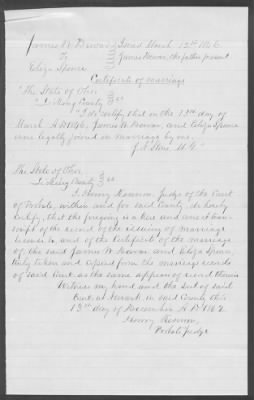 James W. Cowan } Issued March 12th 1846.
To } James Cowan, the father present
Eliza Spence
Certificate of marriage
"The State of Ohio
County } ss
I do certify that on the 12th day of
March A.D. 1846, James W. Cowan, and Eliza Spence
were legally joined in marriage by me.
M. G."
The State of Ohio
County } ss
I, Henry judge of the Court
of Probate, within and for said County do hereby
certify, that the foregoing is a true and correct tran-
script of the record of the issuing of marriage
license to, and of the Certificate of the marriage
of the said James W. Cowan and Eliza Spence,
truly taken and copied from the marriage records
of said Court as the same appears of record therein
Witness my hand and the seal of said
Court at Newark in said County this
13th day of December A.D. 1862.
Henry
Probate judge